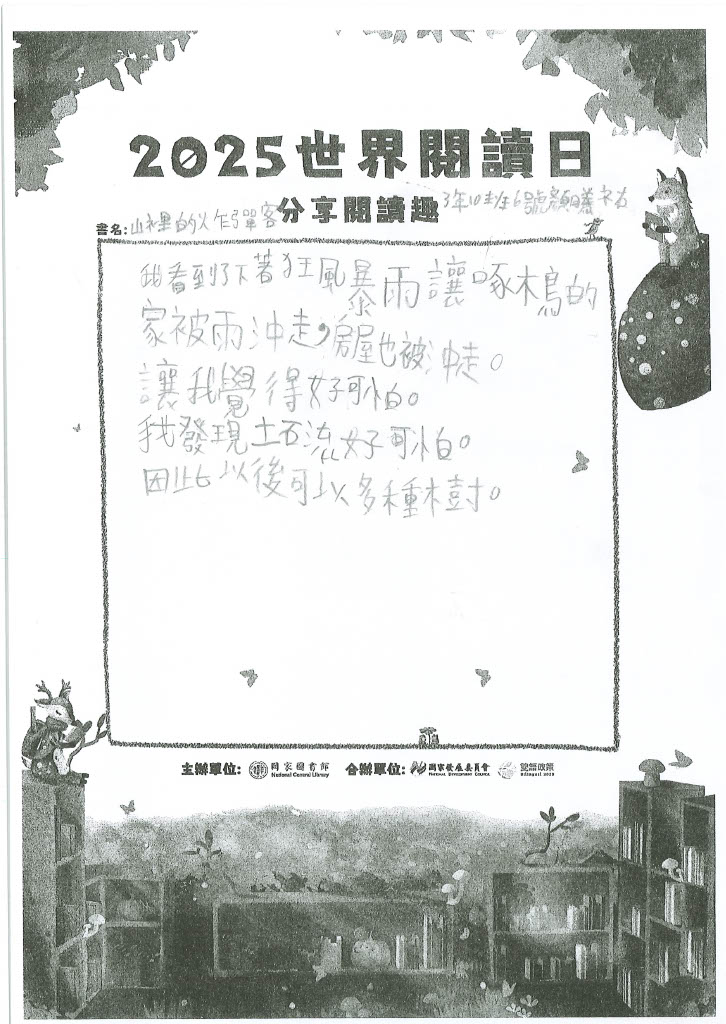 2025世界閱讀日
分享閱讀趣
3年10班6號顏
書名:山裡的火炸彈客
我看到了下著狂風暴雨讓啄木鳥的
家被雨沖走,房屋也被沖走。
讓我覺得好可怕。
我發現土石流好可怕。
因此以後可以多種樹。
主辦單位: 國家圖書館 National Central Library 合辦單位: 國家發展委員會 NATIONAL DEVELOPMENT COUNCIL 雙語政策 Bilingual 2030